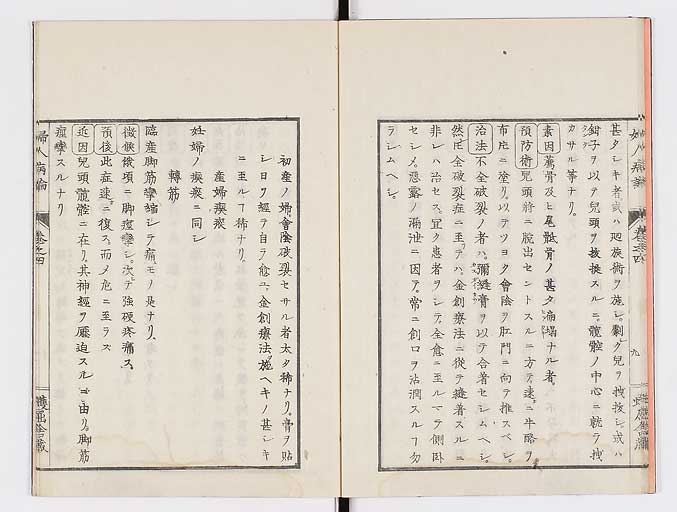 甚タシキ者或ハ廻旋術ヲ施シ劇ク兒ヲ拽拔シ或ハ
鉗子ヲ以テ兒頭ヲ拔提スルニ髖腔ノ中心ニ就テ拽
カサル等ナリ
素因薦骨及ヒ尾骶骨ノ甚タ痛塌ナル者
預防術兒頭將ニ脫出セントスルニ方テ速ニ牛酪ヲ
布片ニ塗リ以テツヨク會陰ヲ肛門ニ向テ推スベシ
治法不全破裂ノ者ハ彌縫膏ヲ以テ合着セシムヘシ
然圧全破裂症ニ至テハ金創療法ニ從テ縫着スルニ
非レハ治セス宜ク患者ヲシテ全愈ニ至ルマテ側臥
セシメ惡露ノ漏泄ニ因テ常ニ創口ヲ沾潤スルフ勿
ラシムヘシ
婦人病論
卷之四
九
初産ノ婦會陰破裂セサル者太タ稀ナリ膏ヲ貼
シ日ヲ經テ自ラ愈ユ金創療法ヲ施ヘキノ甚シキ
ニ至ルフ稀ナリ
産婦瘈瘲
妊婦ノ瘈瘲ニ同シ
轉筋
臨産脚筋攣縮シテ痛モノ是ナリ
徴候後項ニ脚痙攣シ次テ强硬疼痛ス
預後此症速ニ復ス而メ危ニ至ラス
近因兒頭髖腔ニ在リ其神經ヲ壓迫スルニ由リ脚筋
痙攣スルナリ
婦人病論
卷之四